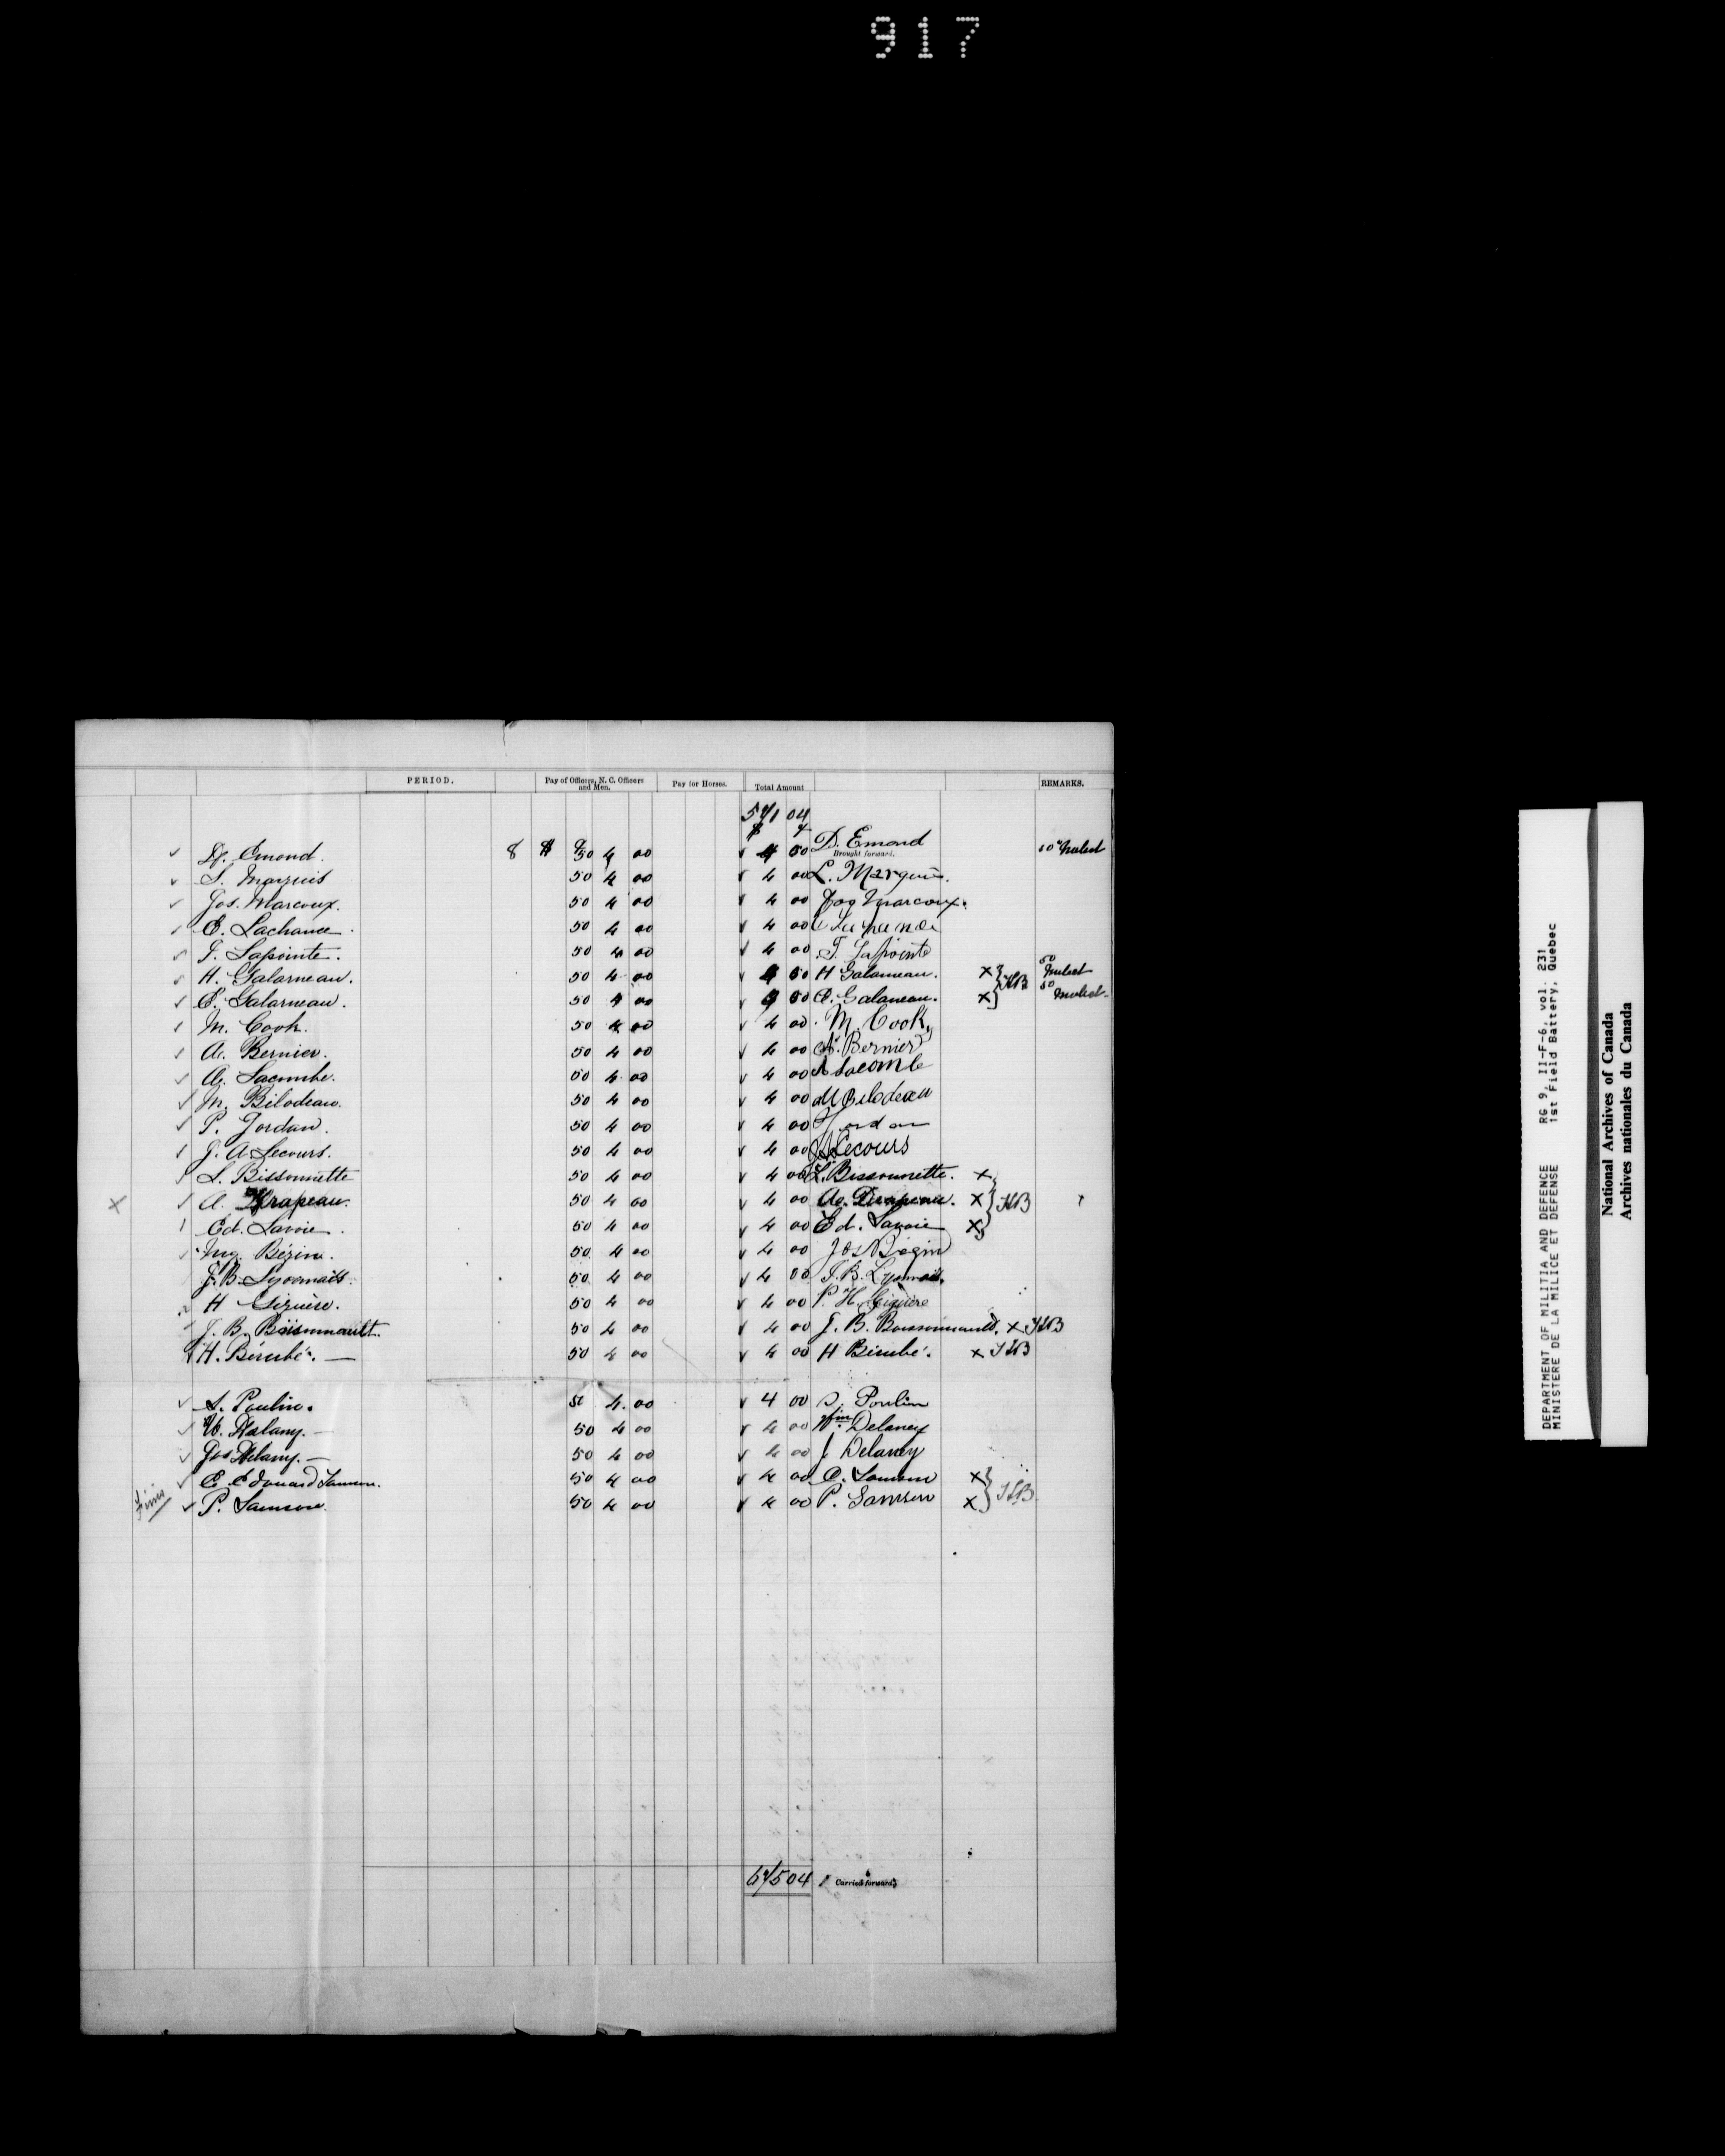 917
PERIOD. Pay of Officers, N. C. Officers and Men. Pay for Horses. Total Amount REMARKS.
571 04
$
Emond. 8 $ 50 4 00 4 00 D. Emond
Brought forward.
L. Marquis 50 4 00 4 00 L. Marquis.
Jos. Marcoux. 50 4 00 4 00 Jos Marcoux.
E. Lachance. 50 4 00 4 00
F. Lapointe. 50 4 00 4 00 F. Lapointe
H. Galarneau. 50 4 00 50 H Galarneau. x
E. Galarneau. 50 4 00 50 E. Galarneau. x
M. Cook. 50 4 00 4 00 M. Cook,
A. Bernier. 50 4 00 4 00 A. Bernier
A. Lacombe. 50 4 00 4 00 A Lacomble
M. Bilodeau. 50 4 00 4 00 M Bilodeau
P. Jordan. 50 4 00 4 00 Jordan
J. A. Lecours. 50 4 00 4 00 JA Lecours
L. Bissonnette 50 4 00 4 00 L. Bissonnette. x
x A. Drapeau. 50 4 00 4 00 A. Drapeau. x
Ed. Lavoie. 50 4 00 4 00 Ed. Lavoie x
Bégin. 50 4 00 4 00 Jos Bégin
J. B. Lyonnais. 50 4 00 4 00 J. B. Lyonnais.
H Giguère. 50 4 00 4 00 P. H. Giguère
J. B. Boissonnault. 50 4 00 4 00 J. B. Boissonnault. x
H. Bérubé. — 50 4 00 4 00 H Bérubé. x
A. Poulin. 50 4.00 4 00 Poulin
W. Delany. — 50 4 00 4 00 Wm. Delaney
Jos Delany. — 50 4 00 4 00 J Delaney
E. Edouard Samson. 50 4 00 4 00 E. Samson x
P. Samson. 50 4 00 4 00 P. Samson x
675 04 Carried forward
DEPARTMENT OF MILITIA AND DEFENCE RG 9, II-F-6, vol. 231
MINISTERE DE LA MILICE ET DEFENSE 1st Field Battery, Quebec
National Archives of Canada
Archives nationales du Canada